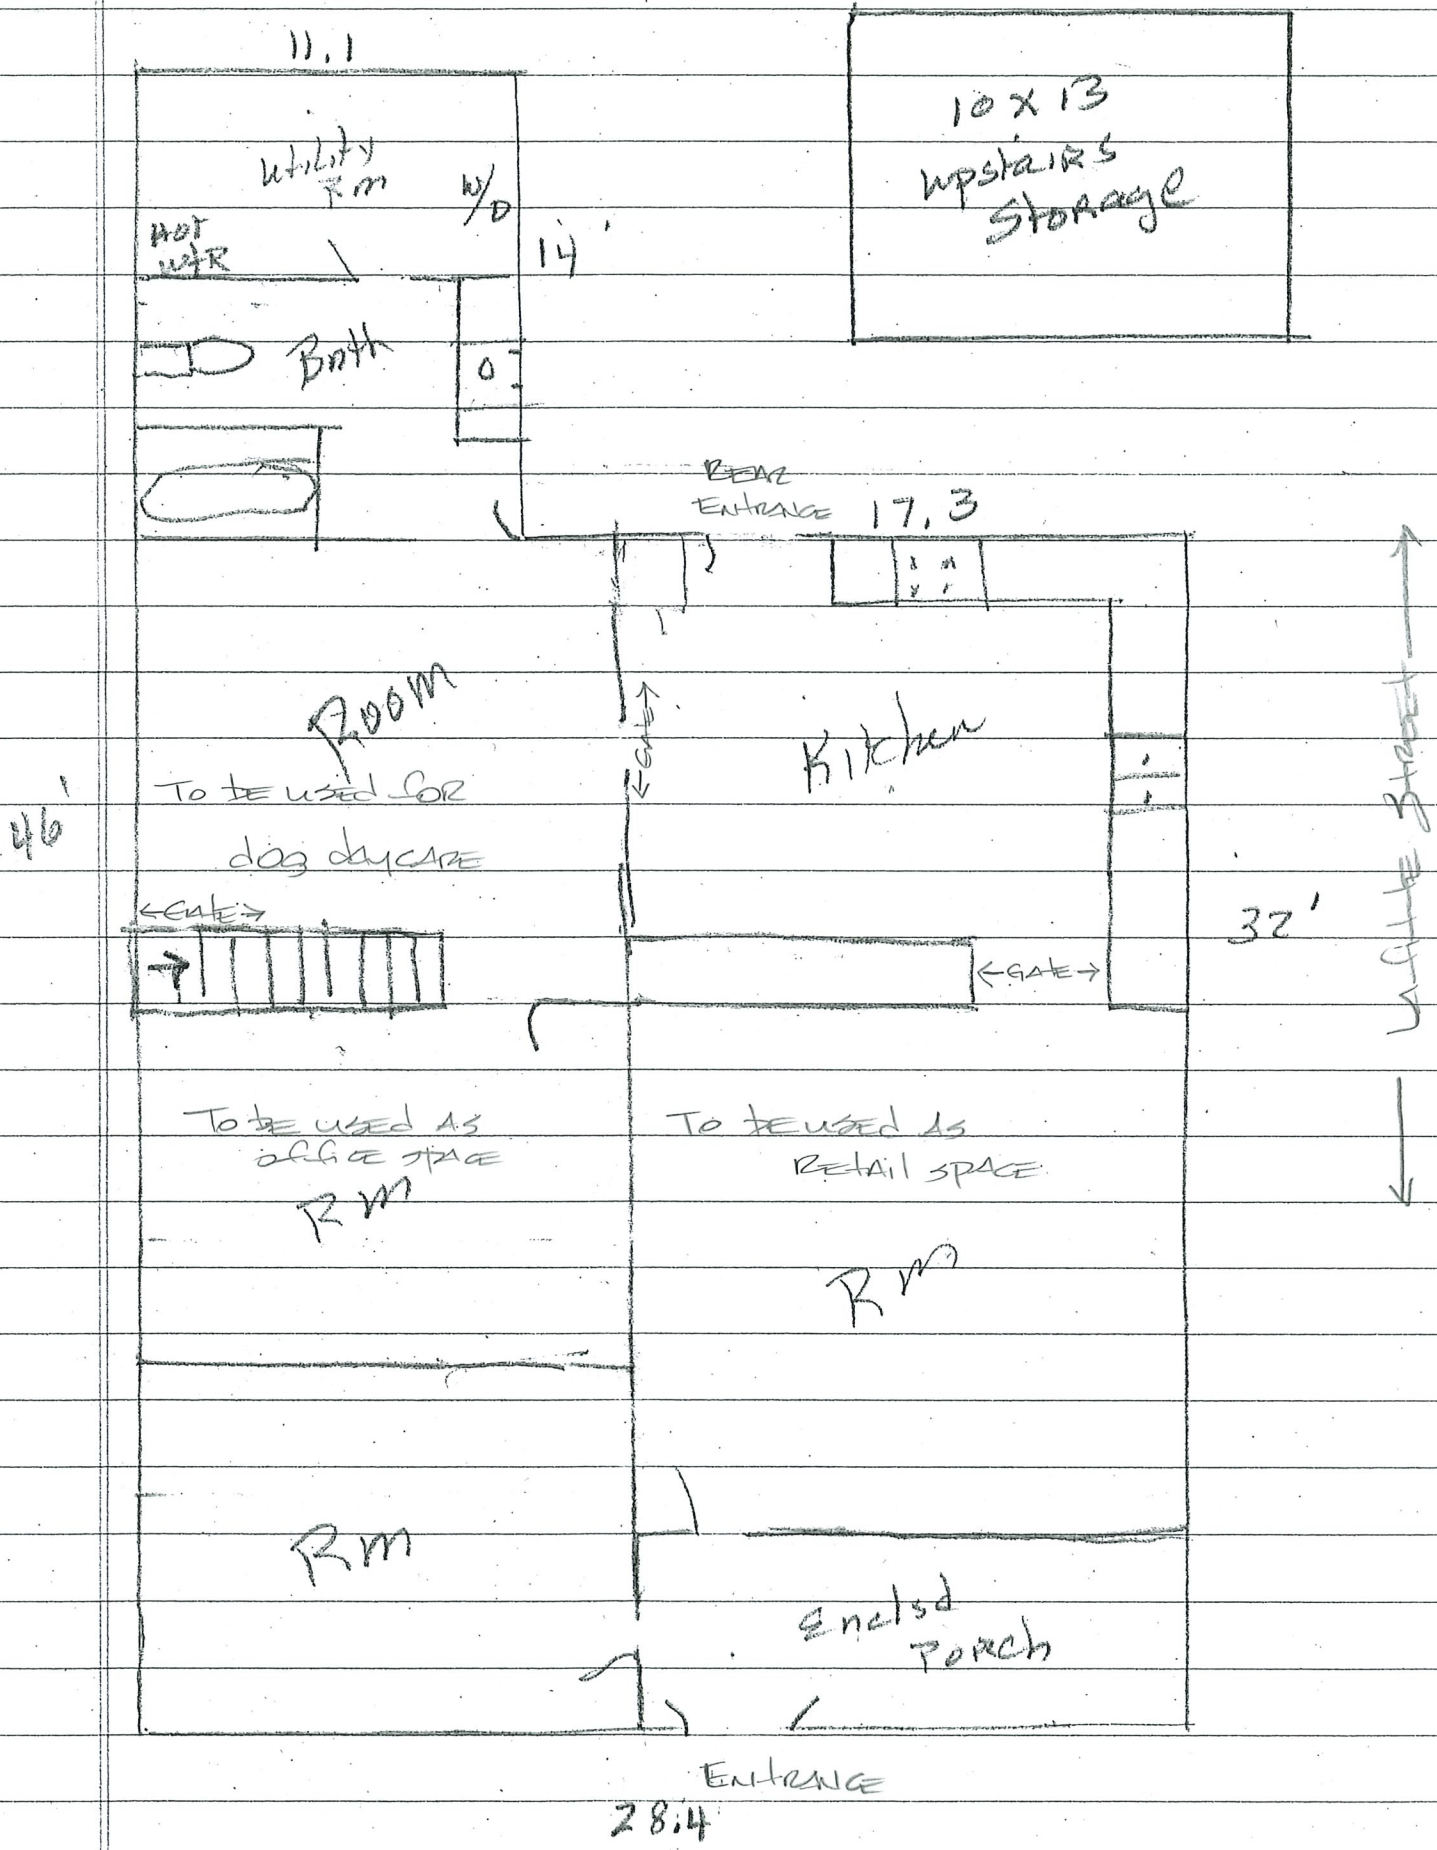 11.1
10 x 13
upstairs
Storage
Utility
Rm
W/D
Hot
WtR
14'
Bath
REAR
ENTRANCE
17.3
Room
To be used for
dog daycare
←GATE→
Kitchen
←GATE→
46'
←GATE→
32'
To be used as
office space
Rm
To be used as
Retail space
Rm
Rm
Enclsd
Porch
ENTRANCE
28.4